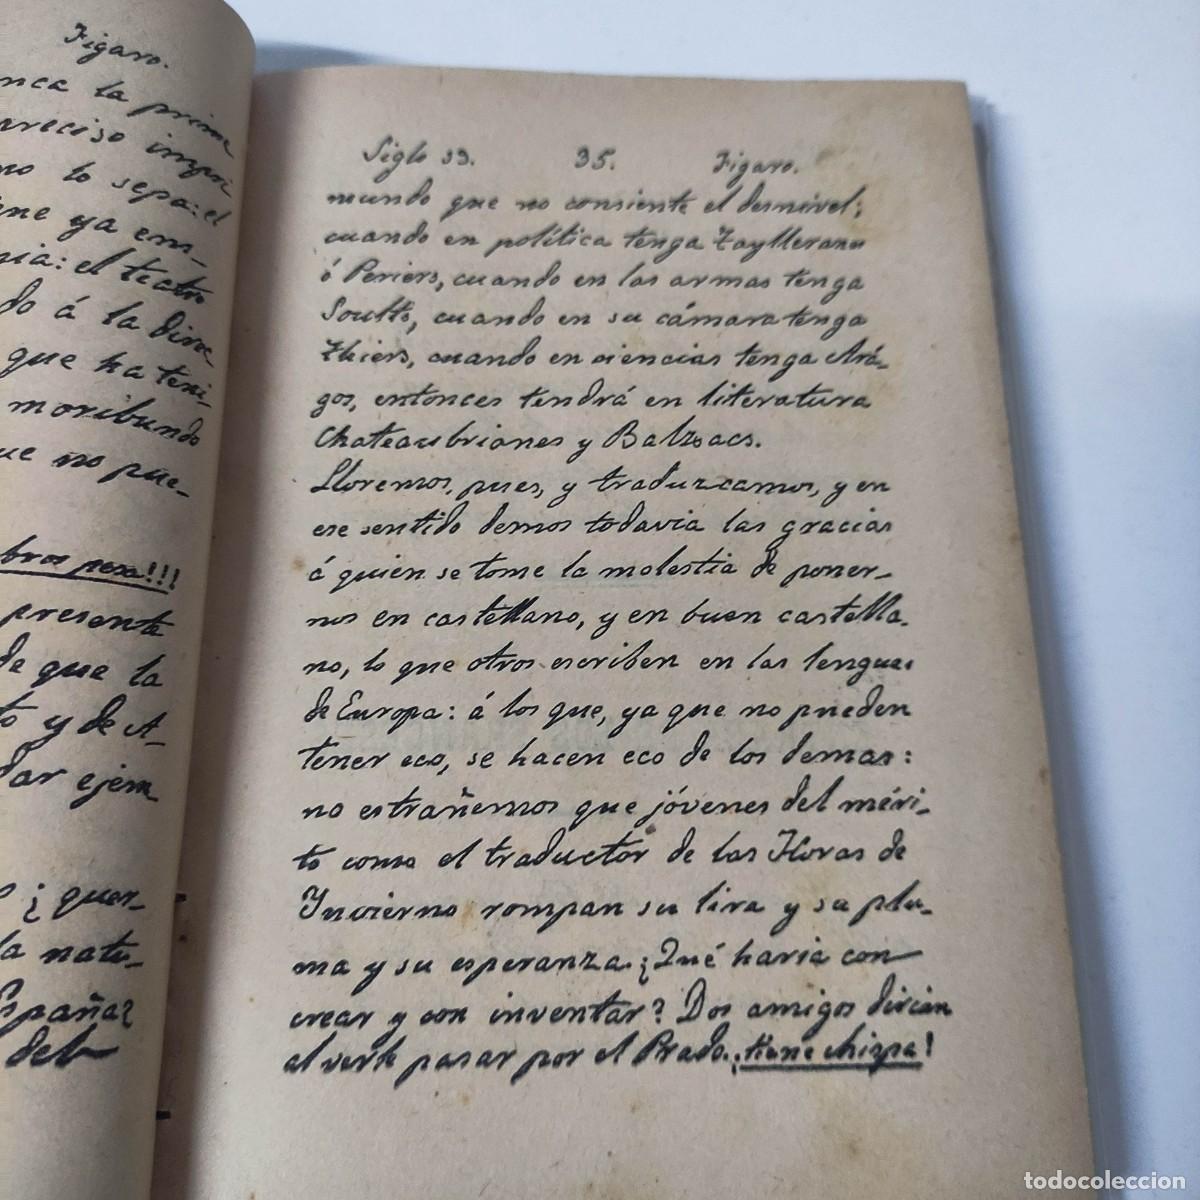 Fígaro.
nca la prime
areciso impri
mo lo sepa: el
ene ya ens-
gia: el teatro
do á la direc
que ha teni-
moribundo
ue no pue-
bros pesa!!!
presenta
de que la
to y de A-
dar ejem
¿quer-
la natu-
España?
deb
Siglo 33. 35. Fígaro.
mundo que no consiente el desnivel;
cuando en política tenga Tayllerans
ó Periers, cuando en las armas tenga
Soults, cuando en su cámara tenga
Thiers, cuando en ciencias tenga Ará-
gos, entonces tendrá en literatura
Chateaubrianes y Balzsacs.
Lloremos, pues, y traduzcamos, y en
ese sentido demos todavia las gracias
á quien se tome la molestia de poner-
nos en castellano, y en buen castella-
no, lo que otros escriben en las lenguas
de Europa: á los que, ya que no pueden
tener eco, se hacen eco de los demas:
no estrañemos que jóvenes del méri-
to como el traductor de las Horas de
Invierno rompan su lira y su plu-
ma y su esperanza. ¿Qué haria con
crear y con inventar? Dos amigos dirian
al verle pasar por el Prado. ¡tiene chispa!
todocoleccion